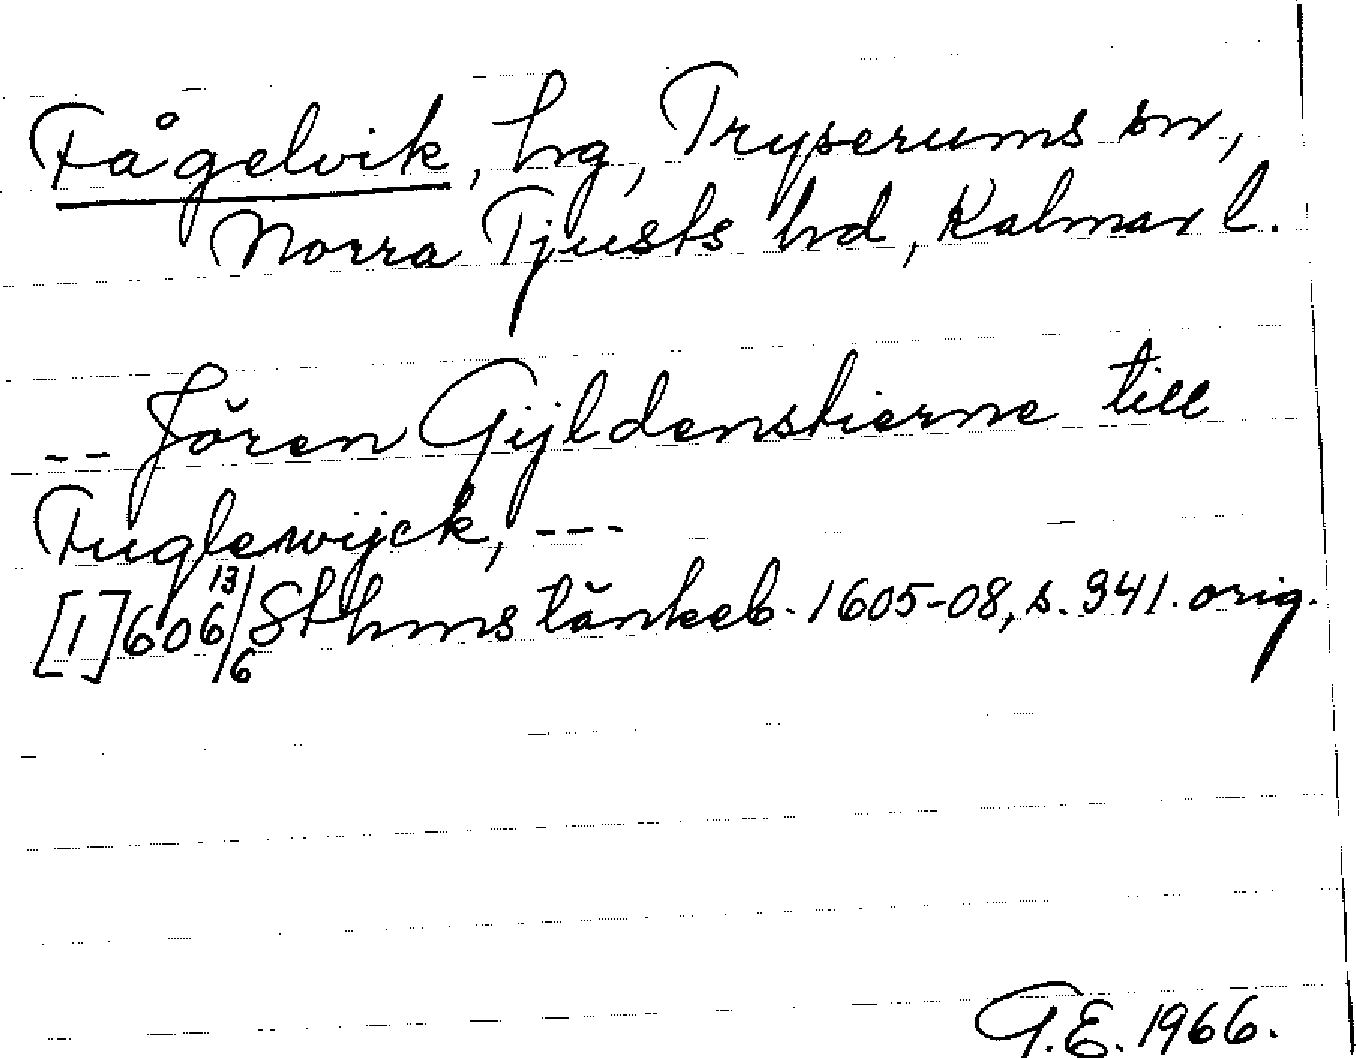 Fågelvik, hrg, Tryserums sn,
Norra Tjusts hrd, Kalmar l.
-- Jören Gÿldenstierne till
Fuglewijck, ---
[1]606 13/6 Sthms tänkeb. 1605-08, s. 341. orig.
G.E. 1966.